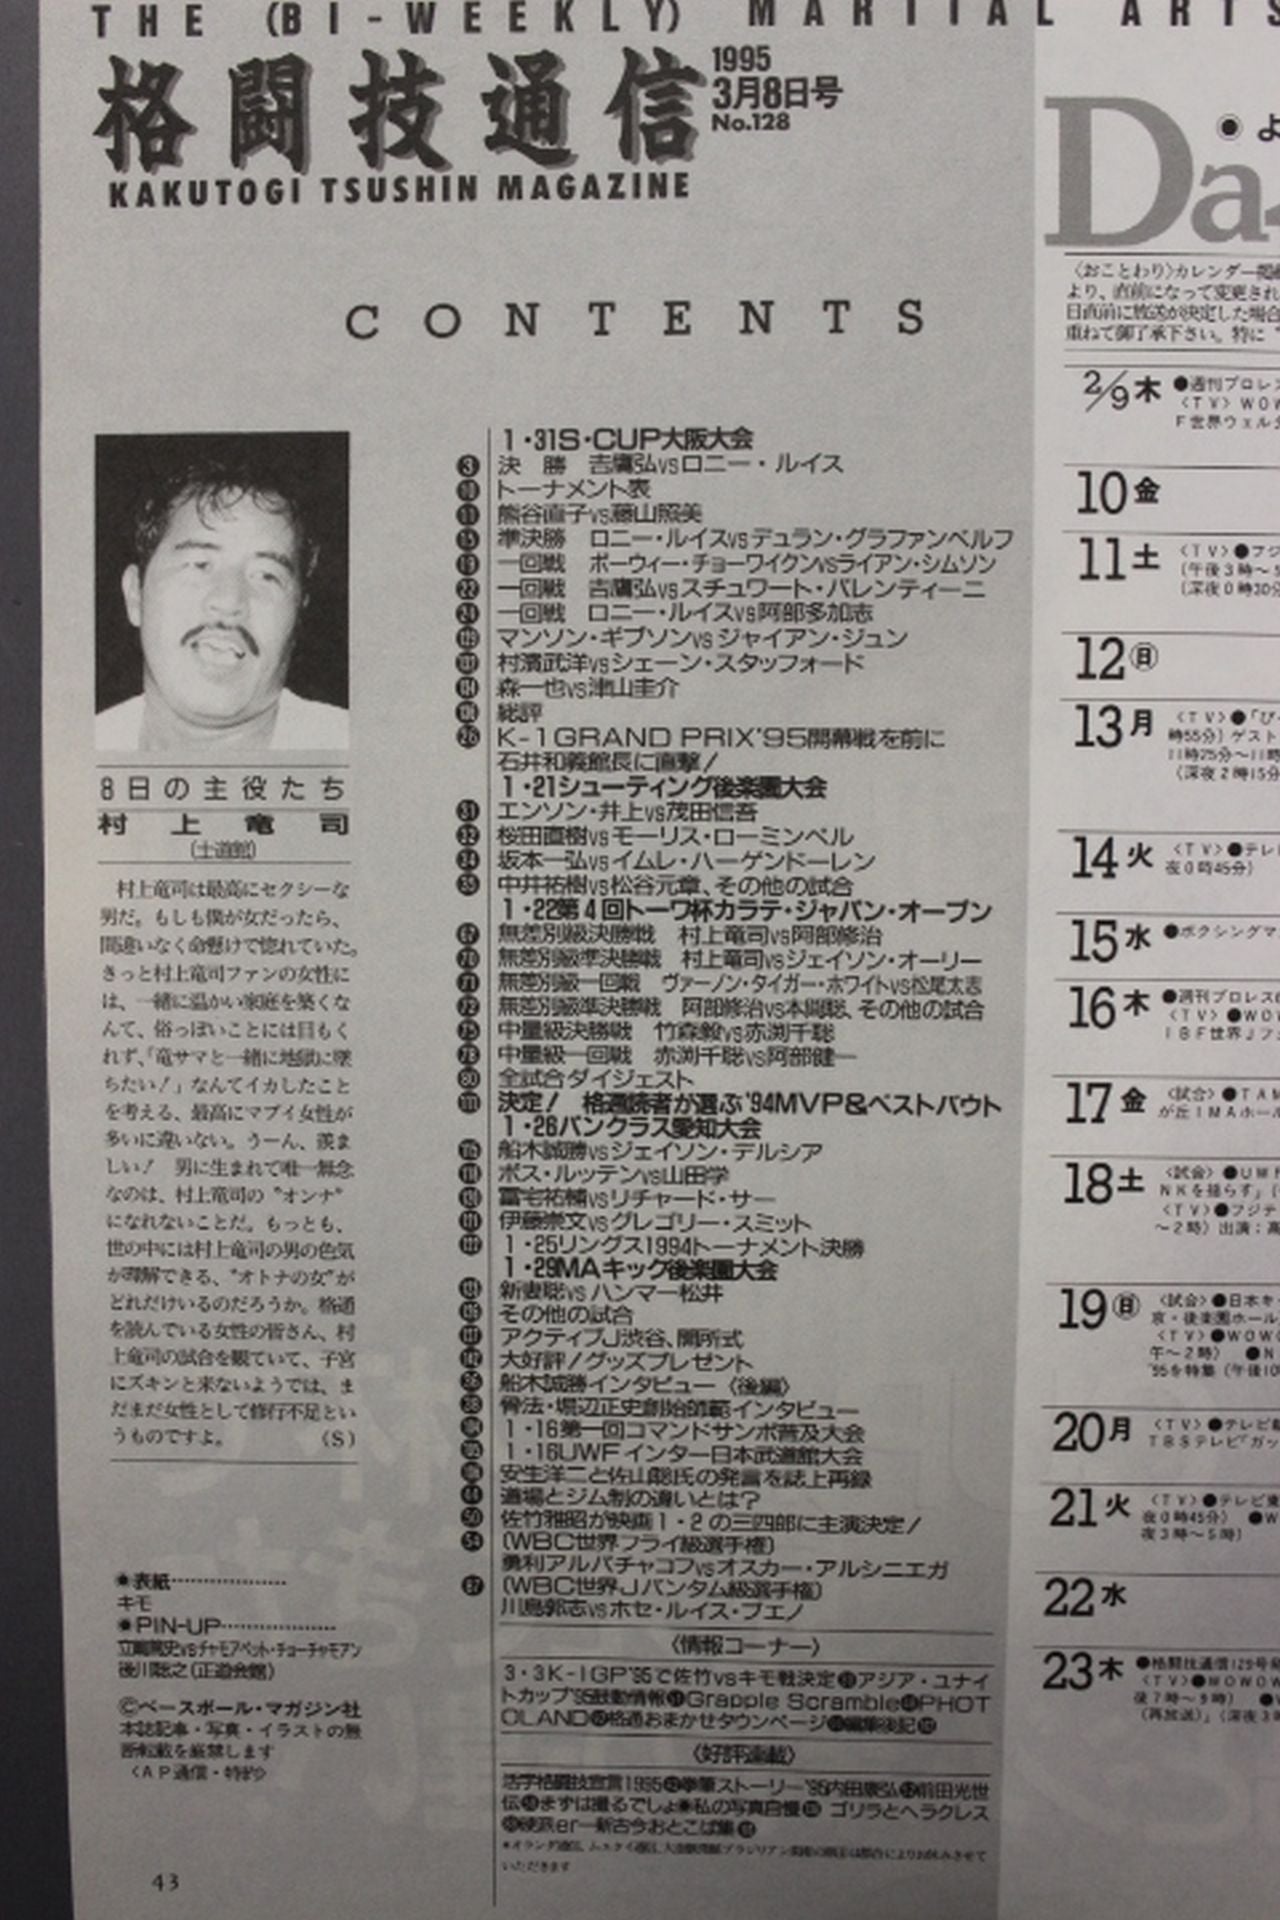 THE (BI-WEEKLY) MARTIAL ARTS
格闘技通信
1995
3月8日号
No.128
KAKUTOGI TSUSHIN MAGAZINE
CONTENTS
8日の主役たち
村上竜司
(士道館)
村上竜司は最高にセクシーな
男だ。もしも僕が女だったら、
間違いなく命懸けで惚れていた。
きっと村上竜司ファンの女性に
は、一緒に温かい家庭を築くな
んて、俗っぽいことには目もく
れず、「竜サマと一緒に地獄に墜
ちたい!」なんてイカしたこと
を考える、最高にマブイ女性が
多いに違いない。うーん、羨ま
しい! 男に生まれて唯一無念
なのは、村上竜司の〝オンナ〟
になれないことだ。もっとも、
世の中には村上竜司の男の色気
が理解できる、〝オトナの女〟が
どれだけいるのだろうか。格通
を読んでいる女性の皆さん、村
上竜司の試合を観ていて、子宮
にズキンと来ないようでは、ま
だまだ女性として修行不足とい
うものですよ。 (S)
●表紙
キモ
●PIN-UP
立嶋篤史vsチャモアペット・チョーチャモアン
後川聡之(正道会館)
©ベースボール・マガジン社
本誌記事・写真・イラストの無
断転載を厳禁します
〈AP通信・特約〉
43
1・31S・CUP大阪大会
3 決 勝 吉鷹弘vsロニー・ルイス
10 トーナメント表
11 熊谷直子vs藤山照美
15 準決勝 ロニー・ルイスvsデュラン・グラファンベルフ
19 一回戦 ボーウィー・チョーワイクンvsライアン・シムソン
22 一回戦 吉鷹弘vsスチュワート・バレンティーニ
24 一回戦 ロニー・ルイスvs阿部多加志
マンソン・ギブソンvsジャイアン・ジュン
村濱武洋vsシェーン・スタッフォード
森一也vs津山圭介
総評
26 K-1GRAND PRIX'95開幕戦を前に
石井和義館長に直撃!
1・21シューティング後楽園大会
31 エンソン・井上vs茂田信吾
32 桜田直樹vsモーリス・ローミンベル
34 坂本一弘vsイムレ・ハーゲンドーレン
35 中井祐樹vs松谷元章、その他の試合
1・22第4回トーワ杯カラテ・ジャパン・オープン
67 無差別級決勝戦 村上竜司vs阿部修治
70 無差別級準決勝戦 村上竜司vsジェイソン・オーリー
71 無差別級一回戦 ヴァーノン・タイガー・ホワイトvs松尾太志
72 無差別級準決勝戦 阿部修治vs本間聡、その他の試合
75 中量級決勝戦 竹森毅vs赤渕千聡
78 中量級一回戦 赤渕千聡vs阿部健一
80 全試合ダイジェスト
決定! 格通読者が選ぶ'94MVP&ベストバウト
1・26パンクラス愛知大会
船木誠勝vsジェイソン・デルシア
バス・ルッテンvs山田学
冨宅祐輔vsリチャード・サー
伊藤崇文vsグレゴリー・スミット
1・25リングス1994トーナメント決勝
1・29MAキック後楽園大会
新妻聡vsハンマー松井
その他の試合
アクティブJ渋谷、開所式
大好評!グッズプレゼント
船木誠勝インタビュー〈後編〉
骨法・堀辺正史創始師範インタビュー
1・16第一回コマンドサンボ普及大会
1・16UWFインター日本武道館大会
安生洋二と佐山聡氏の発言を誌上再録
44 道場とジム制の違いとは?
50 佐竹雅昭が映画1・2の三四郎に主演決定!
54 〔WBC世界フライ級選手権〕
勇利アルバチャコフvsオスカー・アルシニエガ
〔WBC世界Jバンタム級選手権〕
川島郭志vsホセ・ルイス・ブエノ
〈情報コーナー〉
3・3K-1GP'95で佐竹vsキモ戦決定 アジア・ユナイ
トカップ'95鼓動情報 Grapple Scramble PHOT
OLAND 格通おまかせタウンページ 編集後記
〈好評連載〉
活字格闘技宣言1995 拳筆ストーリー'95内田康弘 前田光世
伝 まずは撮るでしょ 私の写真自慢 ゴリラとヘラクレス
硬派er―新古今おとこば集
いただきます
Da
●よ
〈おことわり〉カレンダー掲載
より、直前になって変更され
日直前に放送が決定した場合
重ねて御了承下さい。特に
2/9木 ●週刊プロレス
〈TV〉WOW
F世界ウェルタ
10金
11土 〈TV〉●フジ
(午後3時〜5
(深夜0時30分
12日
13月 〈TV〉●「び
時55分) ゲスト
11時25分〜11時
(深夜2時15分
14火 〈TV〉●テレ
夜0時45分)
15水 ●ボクシングマ
16木 ●週刊プロレス
〈TV〉●WOW
IBF世界Jフ
17金 〈試合〉●TAM
が丘IMAホール
18土 〈試合〉●UWF
NKを揺らす」(
〈TV〉●フジテ
〜2時) 出演:高
19日 〈試合〉●日本キ
京・後楽園ホール
〈TV〉●WOWO
午〜2時) ●N
'95を特集(午後10
20月 〈TV〉●テレビ
TBSテレビ「ガッ
21火 〈TV〉●テレビ東
夜0時45分) ●W
夜3時〜5時)
22水
23木 ●格闘技通信129号発
〈TV〉●WOWOW
後7時〜9時)
(再放送)」(深夜3時